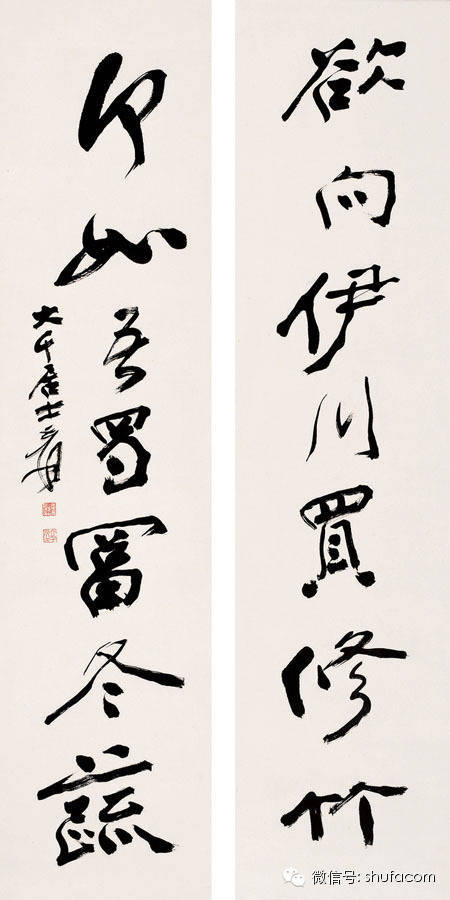 欲向伊川買修竹
仍如吾蜀富冬蔬
大千居士爰
微信号: shufacom